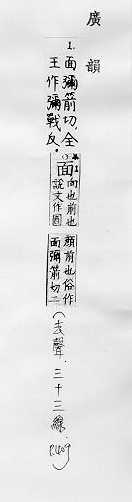 廣韻
1. 面彌箭切.全
王作彌戰反.
面
向也前也
說文作圓
顏前也俗作
面彌箭切二
(去聲.三十三線.
P.409